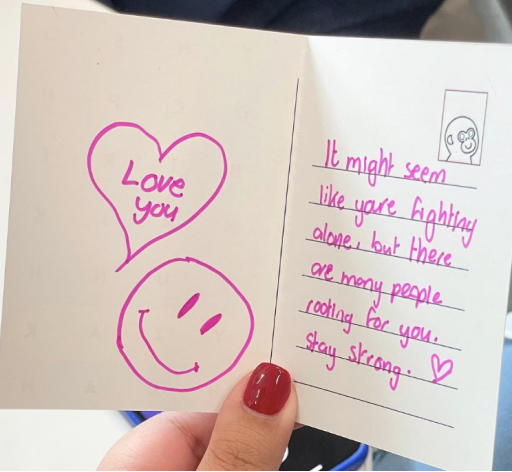 Love
you
It might seem
like youre fighting
alone, but there
are many people
rooting for you.
stay strong.